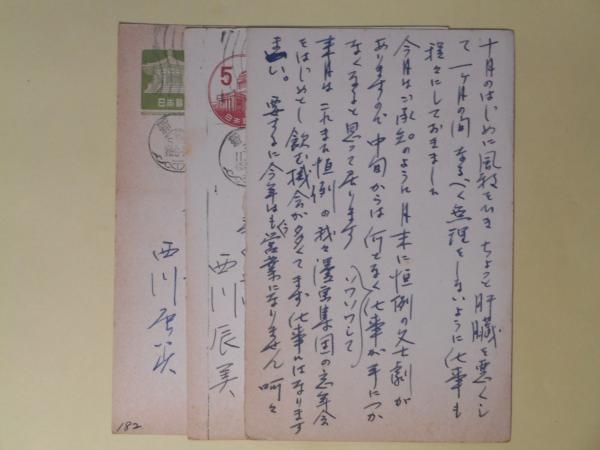 十月のはじめに風邪をひき ちょっと肝臓を悪くし
て 一ヶ月の間 なるべく無理をしないように仕事も
程々にしておきました
今月はご承知のように月末に恒例の文士劇が
ありますので 中旬からは何となく仕事が手につか
なくなると思って居ります
いつハつして
来月はこれまた恒例の我々漫画集団の忘年会
をはじめとし飲む機会が多くてまず仕事にはなります
まい。要するに今年はもう営業になりません 呵々
5
日本郵便
西川辰美
日本郵便
西川辰美
182